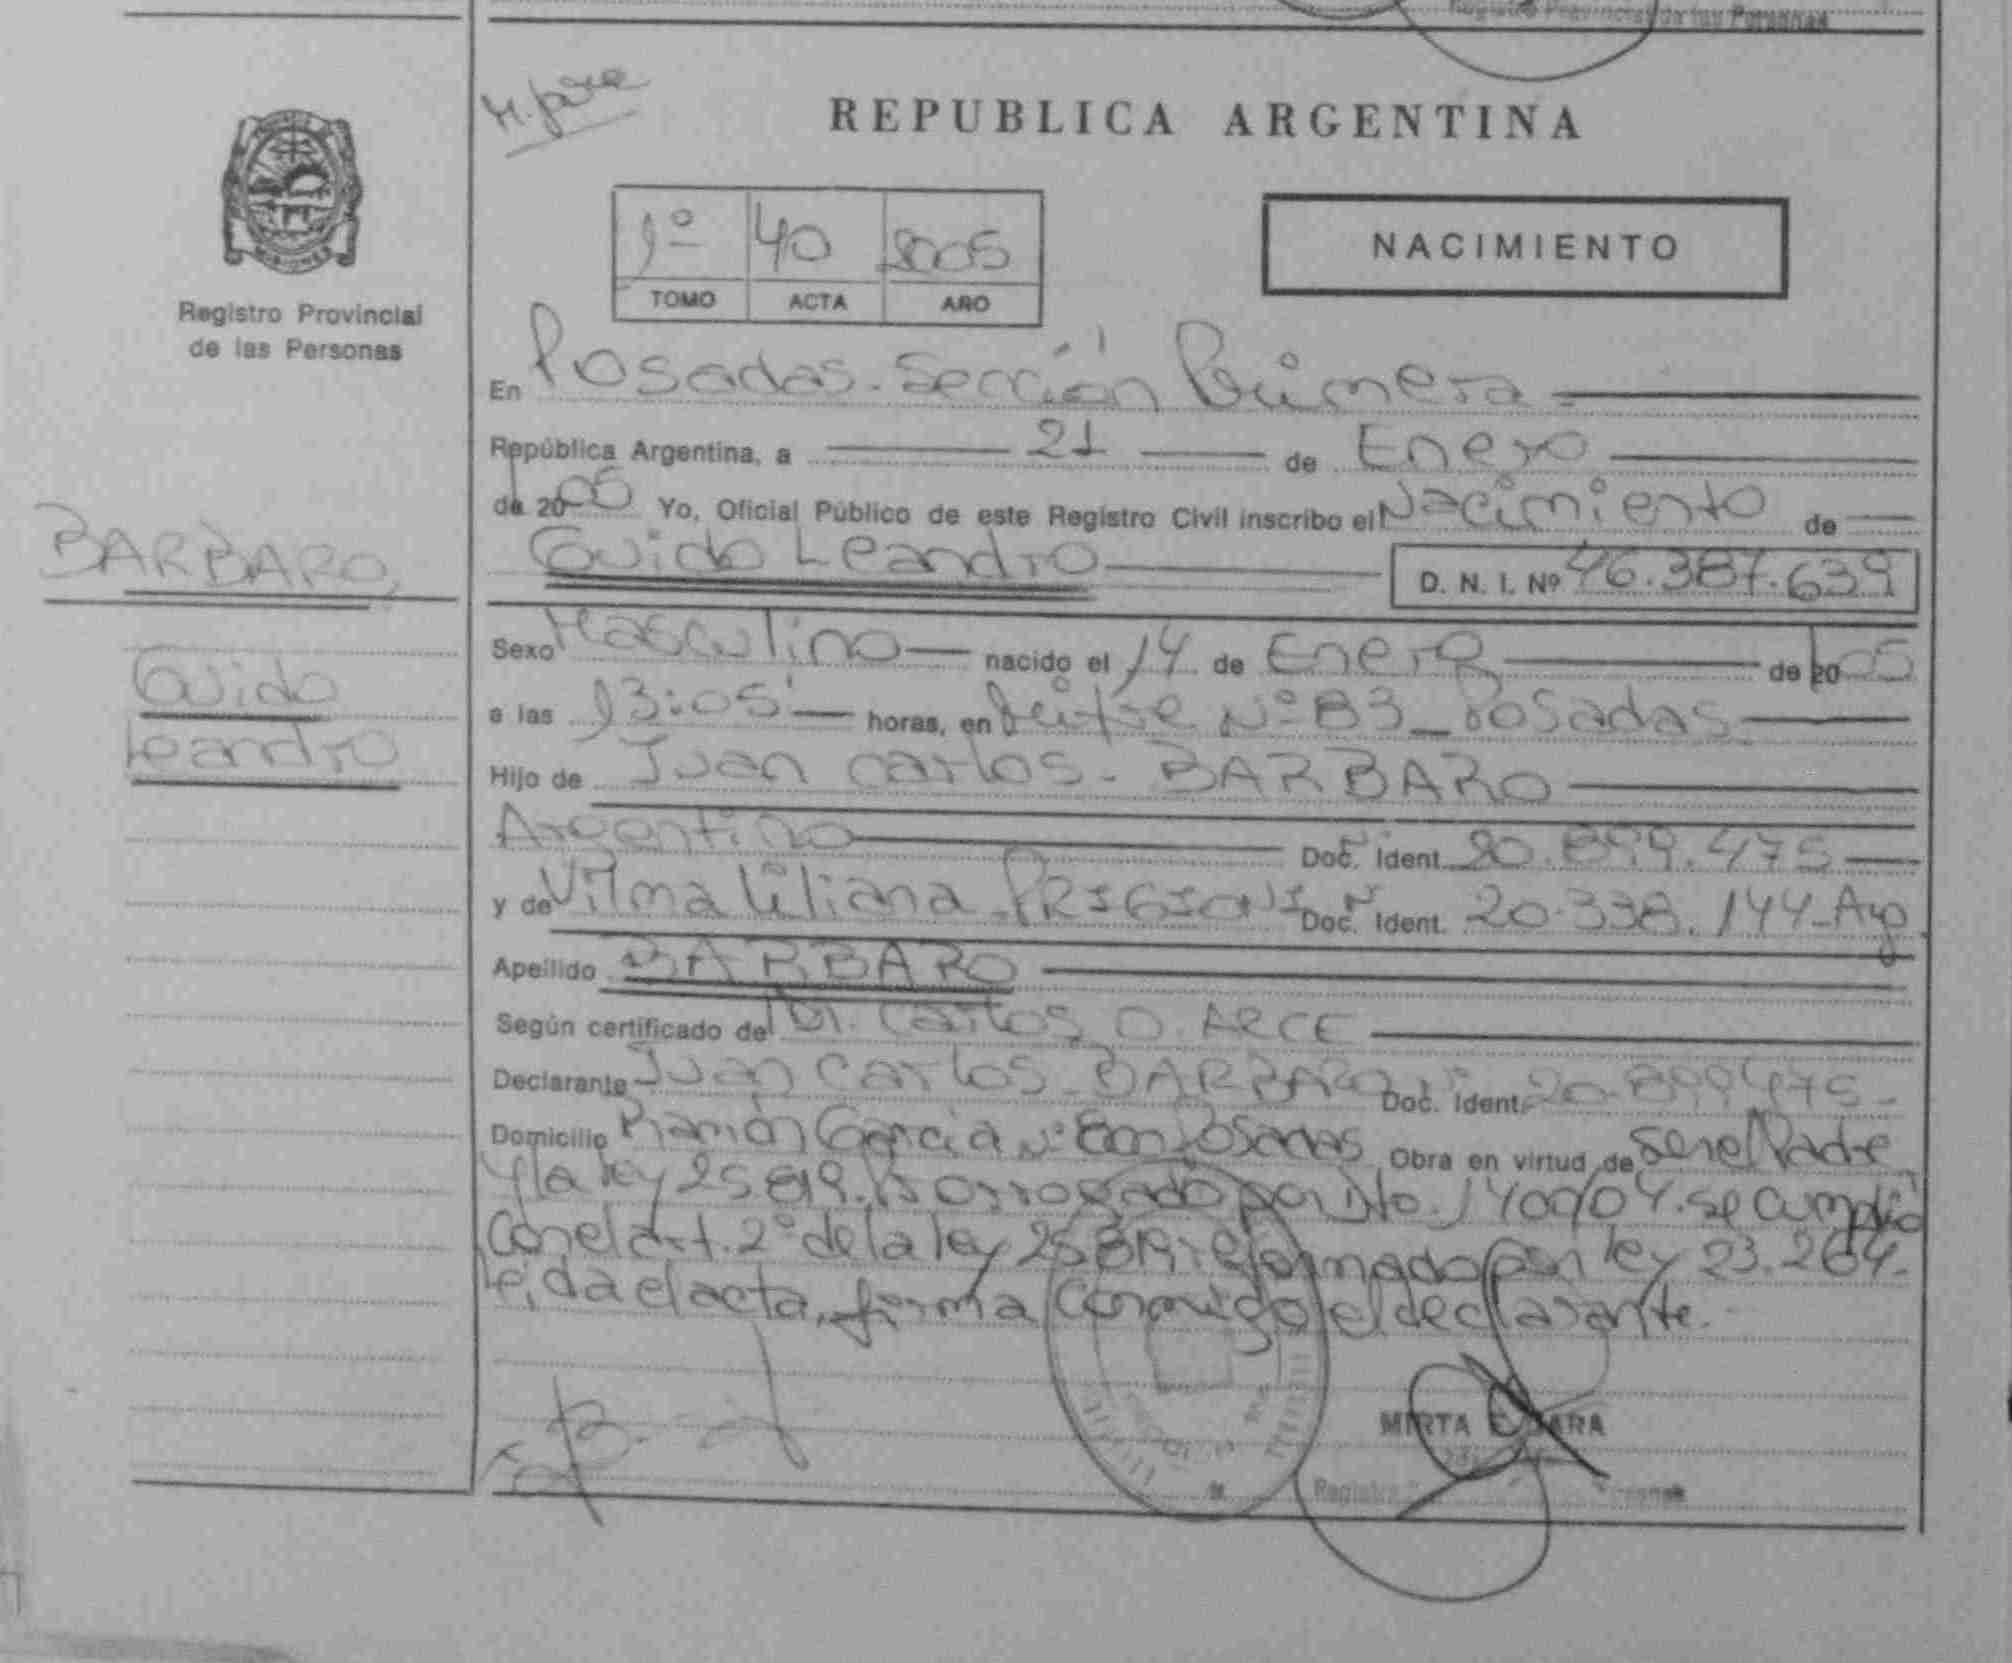 Registro Provincial de las Personas
REPUBLICA ARGENTINA
1º 40 2005
TOMO ACTA AÑO
NACIMIENTO
MISIONES
Registro Provincial
de las Personas
En Posadas - Sección Primera
República Argentina, a 21 de Enero
de 2005 Yo, Oficial Público de este Registro Civil inscribo el Nacimiento de
Guido Leandro D. N. I. Nº 46.387.639
BARBARO,
Guido
Leandro
Sexo Masculino nacido el 14 de Enero de 2005
a las 13:05' horas, en Mitre Nº 83 - Posadas
Hijo de Juan Carlos - BARBARO
Argentino Doc. Ident. 20.899.475
y de Vilma Liliana PRIGIONI Doc. Ident. 20.338.144 - Arg
Apellido BARBARO
Según certificado de Dr. Carlos O. ARCE
Declarante Juan Carlos - BARBARO Doc. Ident. 20.899475 -
Domicilio Ramón García Nº Posadas Obra en virtud de ser el Padre
y la ley 25819. Prorrogado por Dto. 1400/04. se cumplió
con el art. 2º de la ley 25819 reformado por ley 23.264 -
Leida el acta, firma conmigo el declarante. -
MIRTA E. JARA
Registro